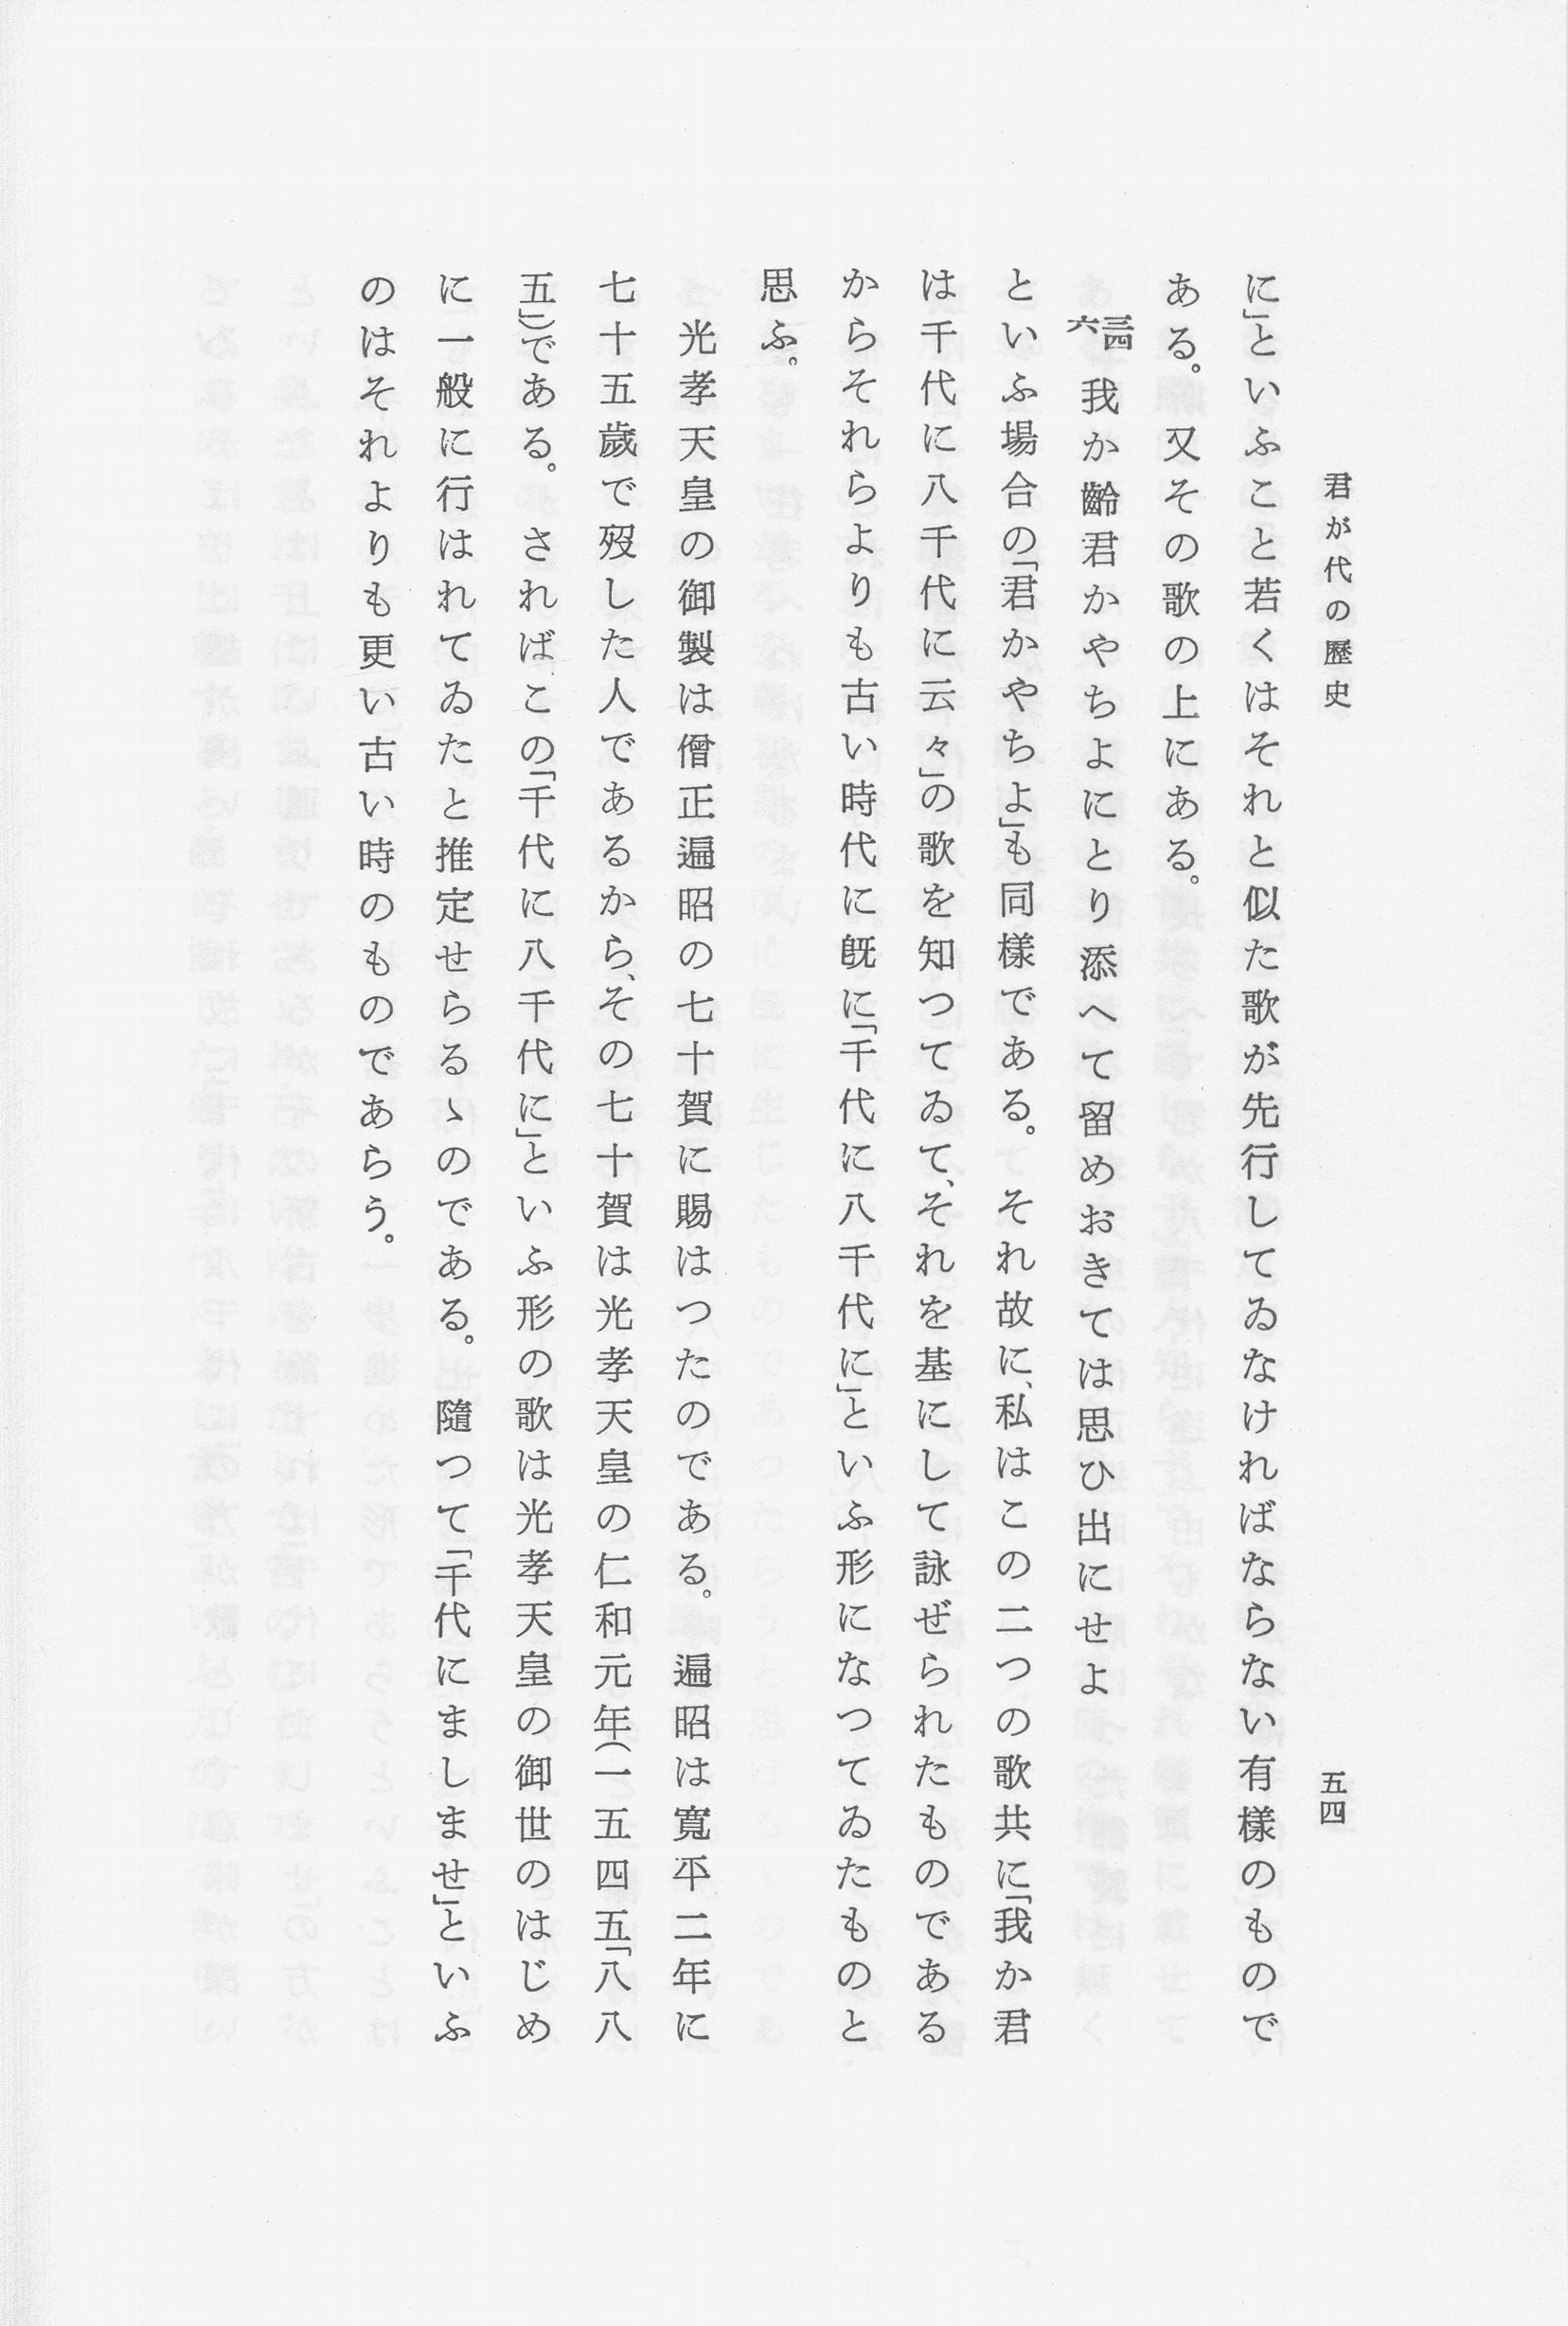 君が代の歴史
五四
に」といふこと若くはそれと似た歌が先行してゐなければならない有樣のもので
ある。又その歌の上にある。
三四六 我か齡君かやちよにとり添へて留めおきては思ひ出にせよ
といふ場合の「君かやちよ」も同樣である。それ故に、私はこの二つの歌共に「我か君
は千代に八千代に云々」の歌を知つてゐて、それを基にして詠ぜられたものである
からそれらよりも古い時代に既に「千代に八千代に」といふ形になつてゐたものと
思ふ。
光孝天皇の御製は僧正遍昭の七十賀に賜はつたのである。遍昭は寬平二年に
七十五歲で歿した人であるから、その七十賀は光孝天皇の仁和元年(一五四五「八八
五」)である。さればこの「千代に八千代に」といふ形の歌は光孝天皇の御世のはじめ
に一般に行はれてゐたと推定せらるゝのである。隨つて「千代にましませ」といふ
のはそれよりも更い古い時のものであらう。